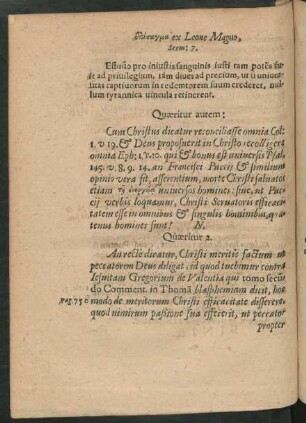 ex Leone Magno,
Serm: 7.
Effusio pro iniustis sanguinis iusti tam potens fu-
it ad privilegium, tàm dives ad precium, ut si univer-
sitas captivorum in redemtorem suum crederet, nul-
lum tyrannica vincula retinerent.
Quæritur autem:
Cum Christus dicatur reconciliasse omnia Col:
1. v 19. & Deus proposuerit in Christo recolligere
omnia Eph: 1. v. 10. qui & bonus est universis Psal.
145. v. 8. 9. 14. an Francisci Puccii & similium
opinio vera sit, asserentium, morte Christi salvatos
etiam τῇ ἐνεργείᾳ universos homines: sive, ut Puc-
cij verbis loquamur, Christi Servatoris efficaci-
tatem esse in omnibus & singulis hominibus, qua-
tenus homines sunt? N.
Quæritur 2.
An rectè dicatur, Christi meritis factum ut
peccatorem Deus diligat: id quod tuebimur contra
Iesuitam Gregorium de Valentia qui tomo secun-
do Comment. in Thomā blasphemiam dicit, hoc
pag. 750 modo de meritorum Christi efficacitate disserere,
quod nimirum passione sua effecerit, ut peccator
propter